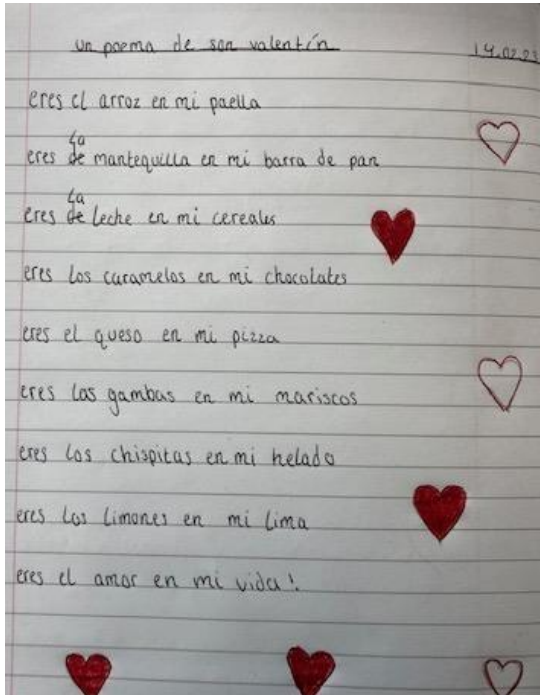 un poema de san valentín 14.02.23
eres el arroz en mi paella
eres de la mantequilla en mi barra de pan
eres de la leche en mi cereales
eres los caramelos en mi chocolates
eres el queso en mi pizza
eres las gambas en mi mariscos
eres los chispitas en mi helado
eres los limones en mi lima
eres el amor en mi vida!